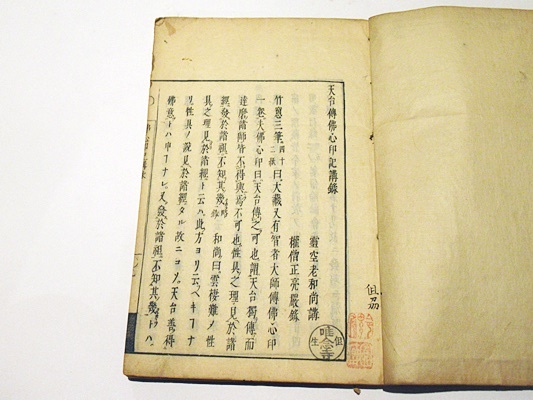 天台傳佛心印記講錄
靈空老和尚講
權僧正亮嚴錄
竹窓三筆四十二張曰大藏又有智者大師傳佛心印
一卷夫佛心印曰天台傳之可也謂天台獨傳而
達磨諸師皆不得與焉不可也性具之理見於諸
經發於諸祖不知其幾 和尚曰雲棲難ノ性
具之理見於諸經ト云ハ此方ヨリ云ヘキヿナ
リ性具ノ説見於諸經タル故ニコソ天台善得
佛意トハ申ヿナヒ又發於諸祖不知其幾トハ
唯念寺
但
生
但